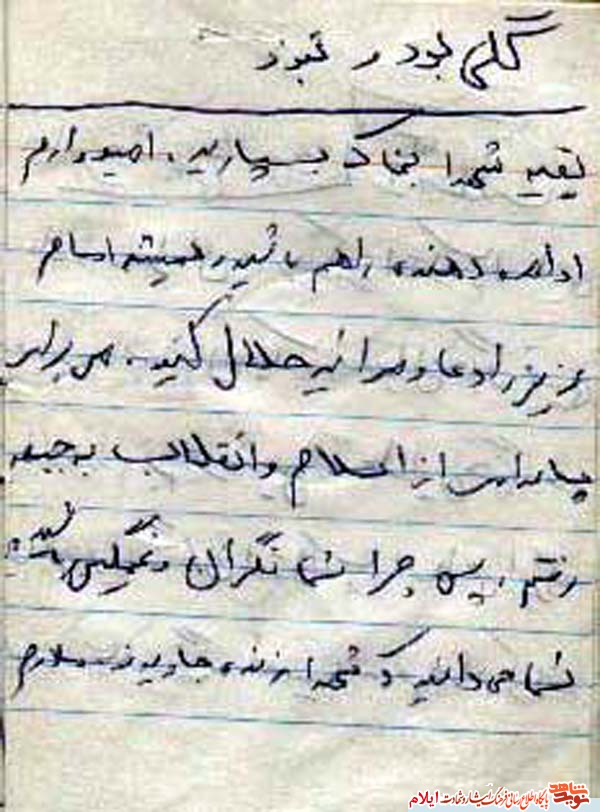 بقیه شهدا بخاک بسپارید، امیدوارم
ادامه دهنده راهم باشید و همیشه امام
عزیز را دعا و مرا نیز حلال کنید. من برای
پاسداری از اسلام و انقلاب به جبهه
رفتم، پس چرا شما نگران و غمگین باشید
شما می دانید که شهدا زنده جاویدند سلام
نوید شاهد پایگاه اطلاع رسانی فرهنگ ایثار و شهادت ایلام